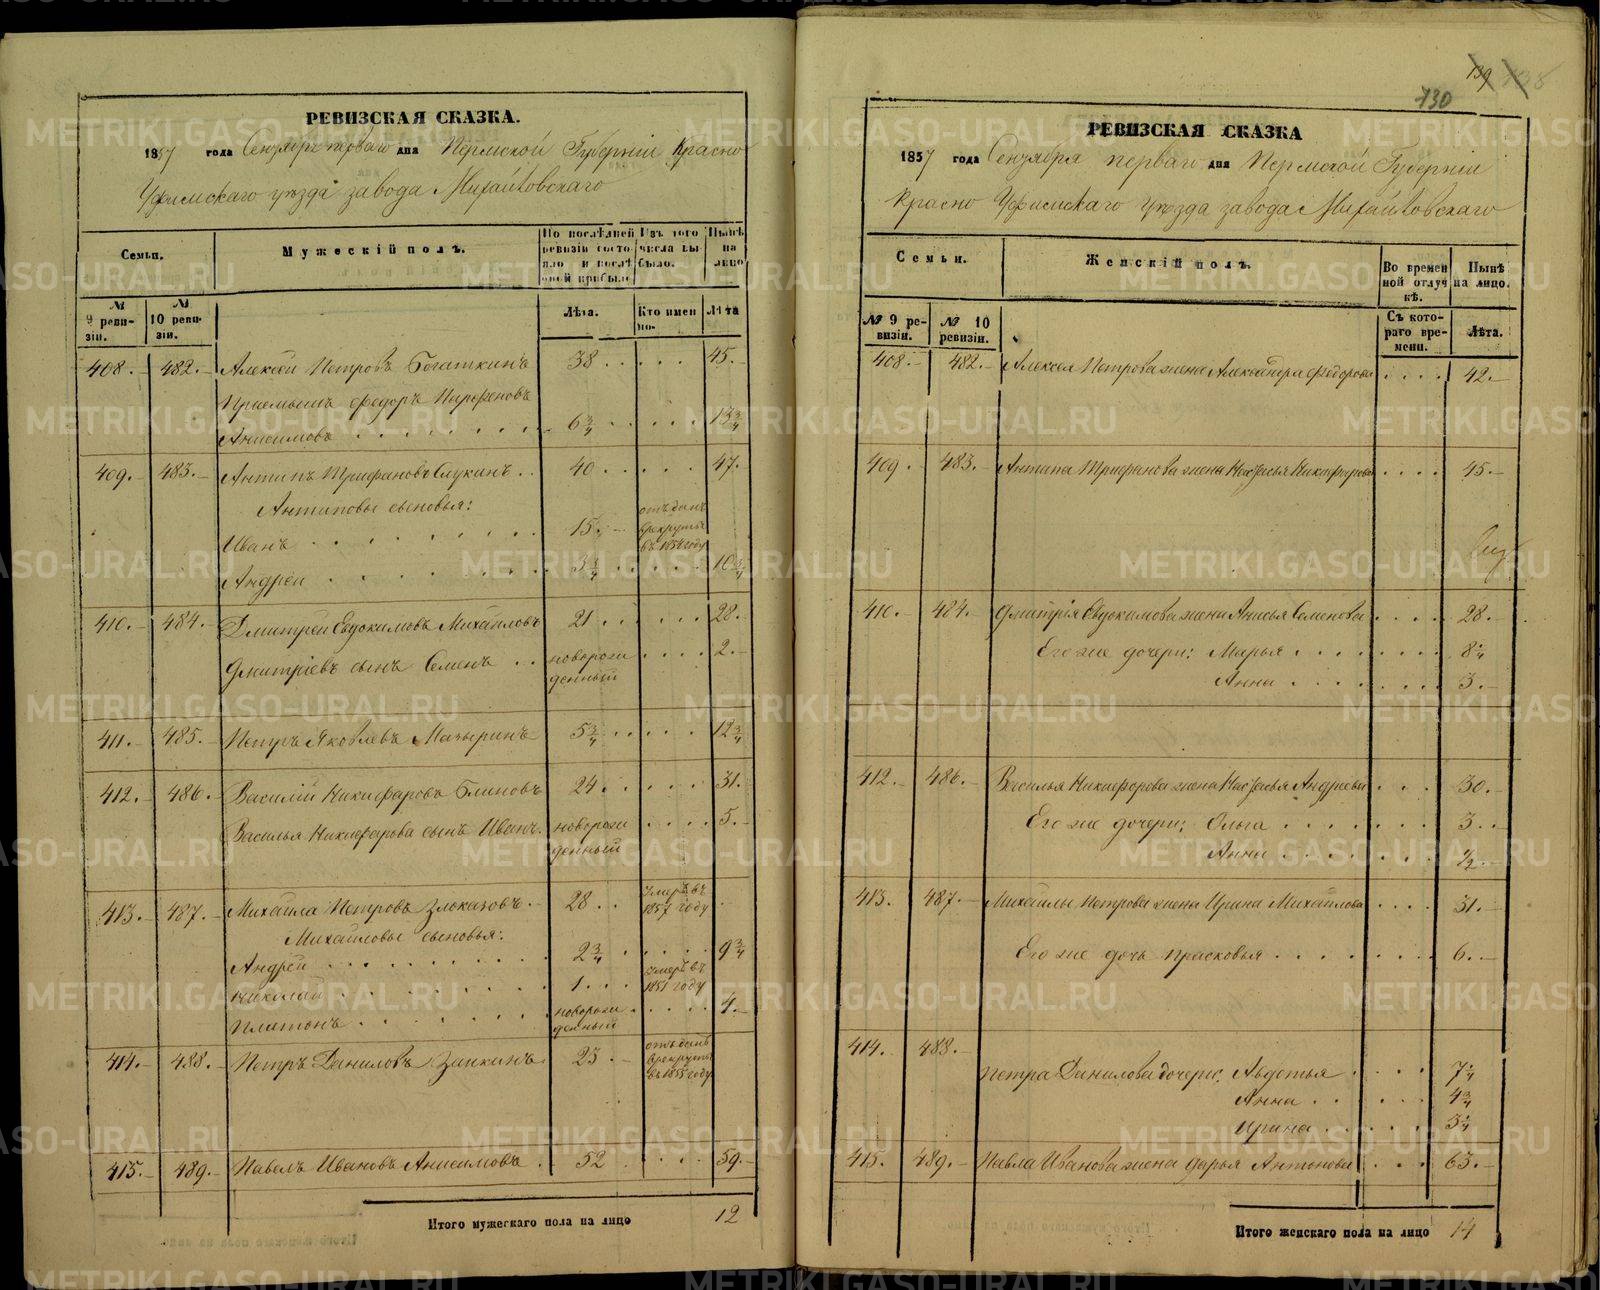 РЕВИЗСКАЯ СКАЗКА.
1857 года Сентября перваго дня Пермской Губерніи Красно
Уфимскаго уѣзда завода Михайловскаго
Семьи.
Мужескій полъ.
По послѣдней ревизіи состояло и послѣ оной прибыло.
Изъ того числа выбыло.
Нынѣ на лицо
№ 9 ревизіи.
№ 10 ревизіи.
Лѣта.
Кто именно.
Лѣта
408. 482. Алексѣй Петровъ Богаткинъ 38 45.
Пріемышъ Федоръ Парфеновъ
Анисимовъ 6¾ 13¾
409. 483. Антипъ Трифановъ Глукинъ 40 47.
Антиповы сыновья:
Иванъ 15. отъданъ врекруты въ 1854 году
Андрей 3¾ 10¾
410. 484. Дмитрей Евдокимовъ Михайловъ 21 28.
Дмитріевъ сынъ Семенъ новорожденный 2.
411. 485. Петръ Яковлевъ 5¾ 12¾
412. 486. Василій Никифаровъ Блиновъ 24 31.
Василья Никифарова сынъ Иванъ новорожденный 5.
413. 487. Михайла Петровъ Злоказовъ 28 умеръ въ 1857 году
Михайловы сыновья:
Андрей 2¾ 9¾
Николай 1 умеръ въ 1851 году
Платонъ новорожденный 4.
414. 488. Петръ Даниловъ Заикинъ 23 отъданъ врекруты въ 1855 году
415. 489. Павелъ Ивановъ Анисимовъ 52 59.
Итого мужескаго пола на лицо 12
139 138
130
РЕВИЗСКАЯ СКАЗКА
1857 года Сентября перваго дня Пермской Губерніи
Красно Уфимскаго уѣзда завода Михайловскаго
Семьи.
Женскій полъ.
Во временной отлучкѣ.
Нынѣ на лицо.
№ 9 ревизіи.
№ 10 ревизіи.
Съ котораго времени.
Лѣта.
408. 482. Алексея Петрова жена Александра Федорова 42.
409. 483. Антипа Трифанова жена Настасья Никифорова 45.
410. 484. Дмитрія Евдокимова жена Анисья Семенова 28.
Его же дочери: Марья 8¼
Анна 3.
412. 486. Василья Никифорова жена Настасья Андреева 30.
Его же дочери: Ольга 3.
Анна ½.
413. 487. Михайлы Петрова жена Ирина Михайлова 31.
Его же дочь Прасковья 6.
414. 488.
Петра Данилова дочери: Авдотья 7¼
Анна 4¾
Ирина 3¼
415. 489. Павла Иванова жена Дарья Антонова 63.
Итого женскаго пола на лицо 14
METRIKI.GASO-URAL.RU